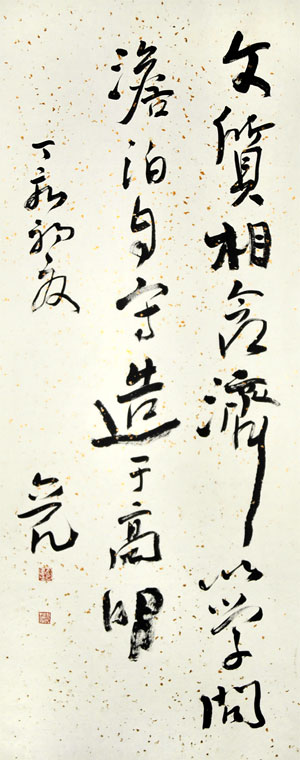 文質相含濟以学問
澹泊自守造于高明
丁亥初夏